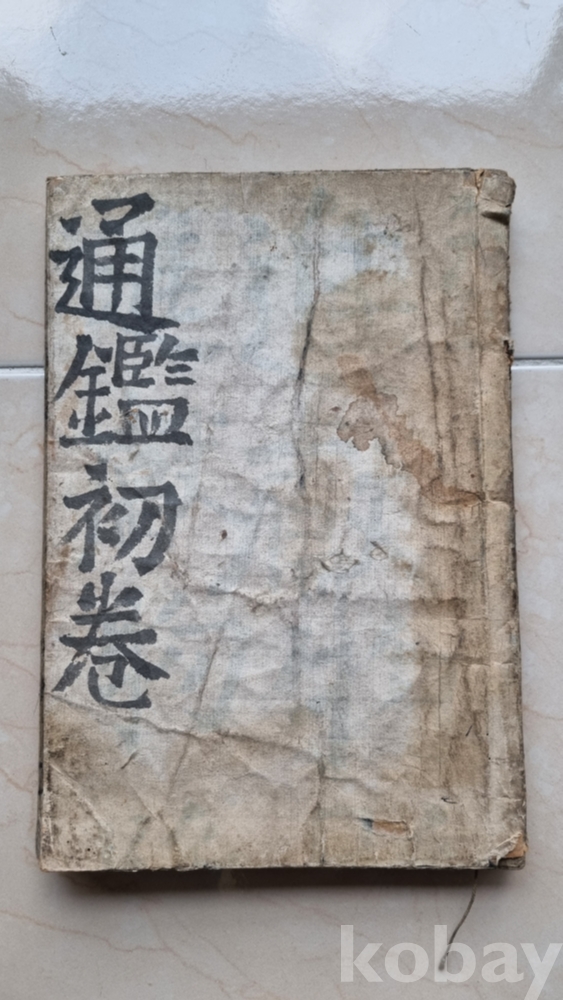 通鑑初卷
kobay